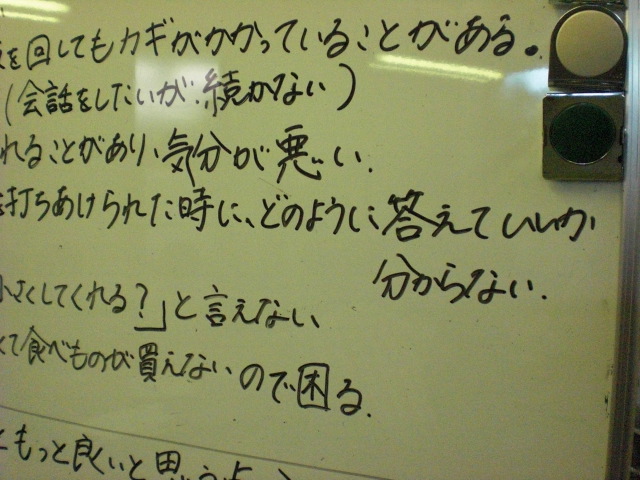 を回してもカギがかかっていることがある。
(会話をしたいが続かない)
れることがあり、気分が悪い.
打ちあけられた時に、どのように答えていいか
分からない.
小さくしてくれる?」と言えない
くて食べものが買えないので困る.
ともっと良いと思う